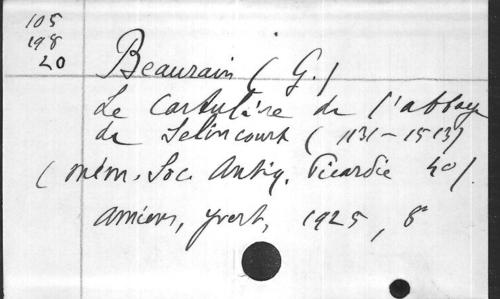 105
198
20
Beaurain (G.)
Le Cartulaire de l'abbaye
de Selincourt (1131-1513)
(mém. Soc. Antiq. Picardie 40).
Amiens, Yvert, 1925, 8°